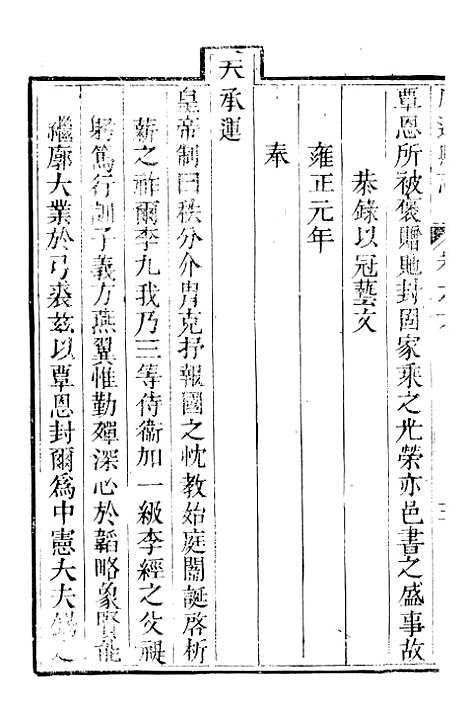 覃恩所被褒贈貤封固家乘之光榮亦邑書之盛事故
恭錄以冠藝文
雍正元年
奉
天承運
皇帝制曰秩分介冑克抒報國之忱教始庭闈誕啓析
薪之祚爾李九我乃三等侍衞加一級李經之父褆
躬篤行訓子義方燕翼惟勤殫深心於韜略象賢能
繼廓大業於弓裘茲以覃恩封爾爲中憲大夫錫之